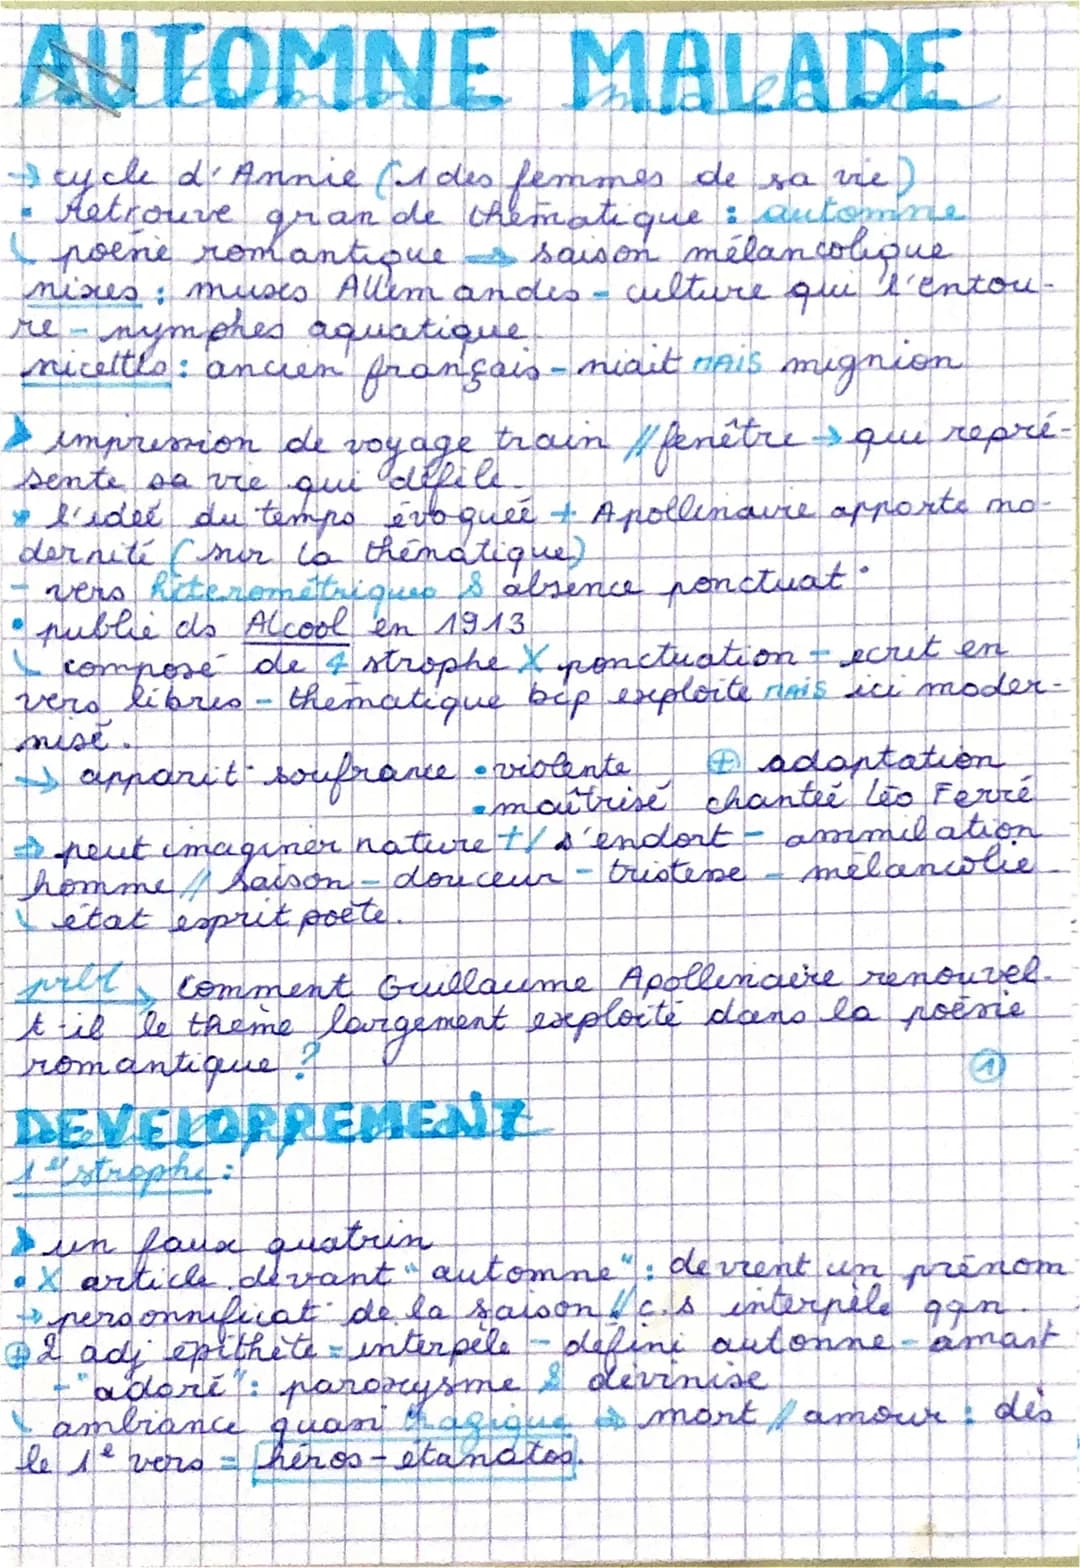 AUTOMNE MALADE
→ cycle d'Annie (1 des femmes de sa vie)
• Retrouve grande thématique : automne
↳ poésie romantique → saison mélancolique
nixes : muses Allemandes - culture qui l'entou-
re - nymphes aquatique
nicettes : ancien français - niait MAIS mignion
➤ impression de voyage train // fenêtre → qui repré-
sente sa vie qui défile.
• l'ideé du temps évoqueé + Apollinaire apporte mo-
dernité (sur la thématique)
- vers héterométriques & absence ponctuat°
• publié ds Alcool en 1913
↳ composé de 4 strophe X ponctuation - ecrit en
vers libres - thématique bcp exploité MAIS ici moder-
nisé.
→ apparit° soufrance • violente ⊕ adaptation
• maîtrisé chanteé Léo Ferré
⇒ peut imaginer nature +/ s'endort - ammilation
homme // saison - douceur - tristesse - mélancolie
↳ état esprit poète.
prblt ↘ Comment Guillaume Apollinaire renouvel-
t-il le thème largement exploité dans la poésie
romantique ? ①
DEVELOPPEMENT
1e strophe :
➤ un faux quatrin
• X article devant "automne" : devient un prénom
→ personnificat° de la saison // c.s interpèle qqn.
⊕ 2 adj épithète = interpèle - défini automne - amant
- "adoré" : paroxysme & divinise
↳ ambiance quasi tragique → mort // amour : dès
le 1e vers = héros - étanatos.